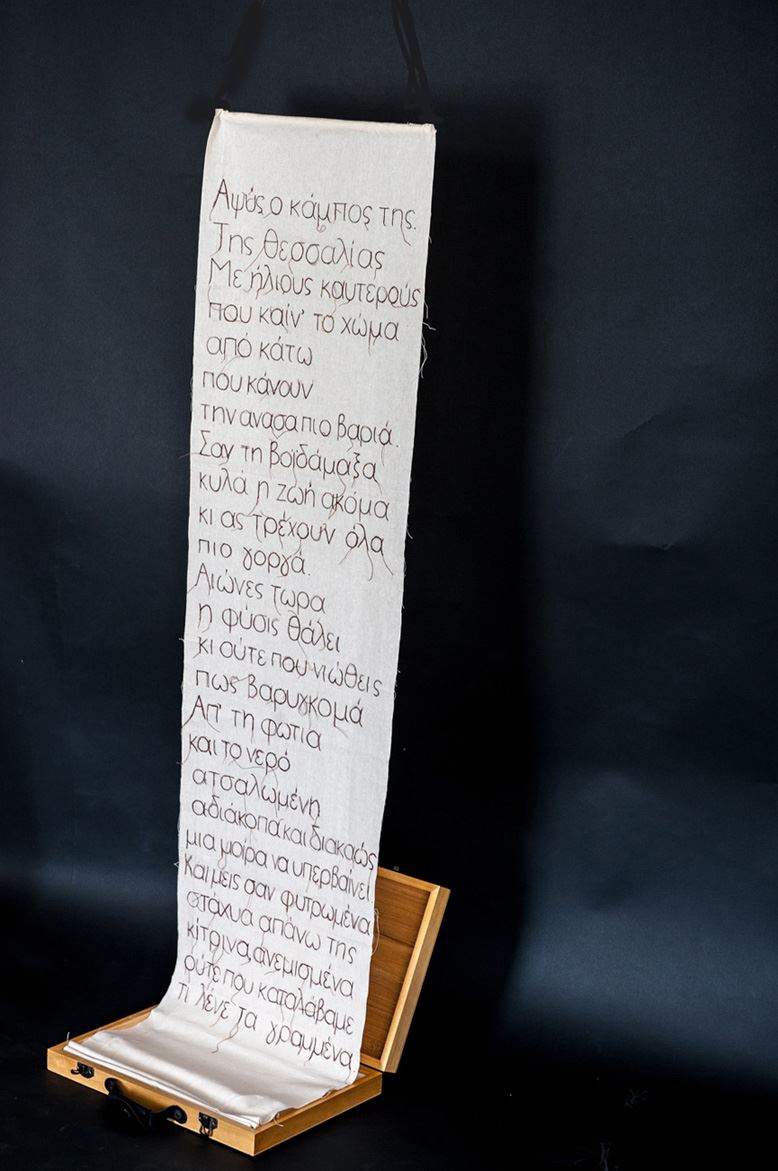 Αψύς ο κάμπος της.
Της Θεσσαλίας
Με ήλιους καυτερούς
που καίν' το χώμα
από κάτω
που κάνουν
την ανασα πιο βαριά.
Σαν τη βοϊδάμαξα
κυλά η ζωή ακόμα
κι ας τρέχουν όλα
πιο γοργά.
Αιώνες τωρα
η φύσις θάλει
κι ούτε που νιώθεις
πως βαρυγκομά
Απ' τη φωτια
και το νερό
ατσαλωμένη
αδιάκοπα και διακαώς
μια μοίρα να υπερβαίνει
Και μεις σαν φυτρωμένα
στάχυα απάνω της
κίτρινα, ανεμισμένα
ούτε που καταλάβαμε
τι λένε τα γραμμένα